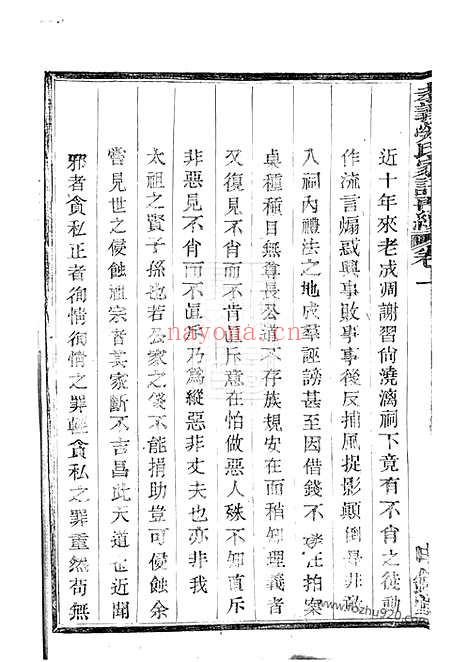 近十年來老成凋謝習尚澆漓祠下竟有不肖之徒動
作流言煽惑興事敗事事後反捕風捉影顛倒是非敢
入祠內禮法之地成羣誣謗甚至因借錢不在拍案
桌種種目無尊長公道不存族規安在而稍知理義者
又復見不肖而不肯直斥意在怕做惡人殊不知直斥
非惡見不肖而不直斥乃爲縱惡非丈夫也亦非我
太祖之賢子孫也若公家之錢不能捐助豈可侵蝕余
嘗見世之侵蝕祖宗者其家斷不吉昌此天道也近聞
邪者貪私正者徇情徇情之罪輕貪私之罪重然苟無
nayona.cn